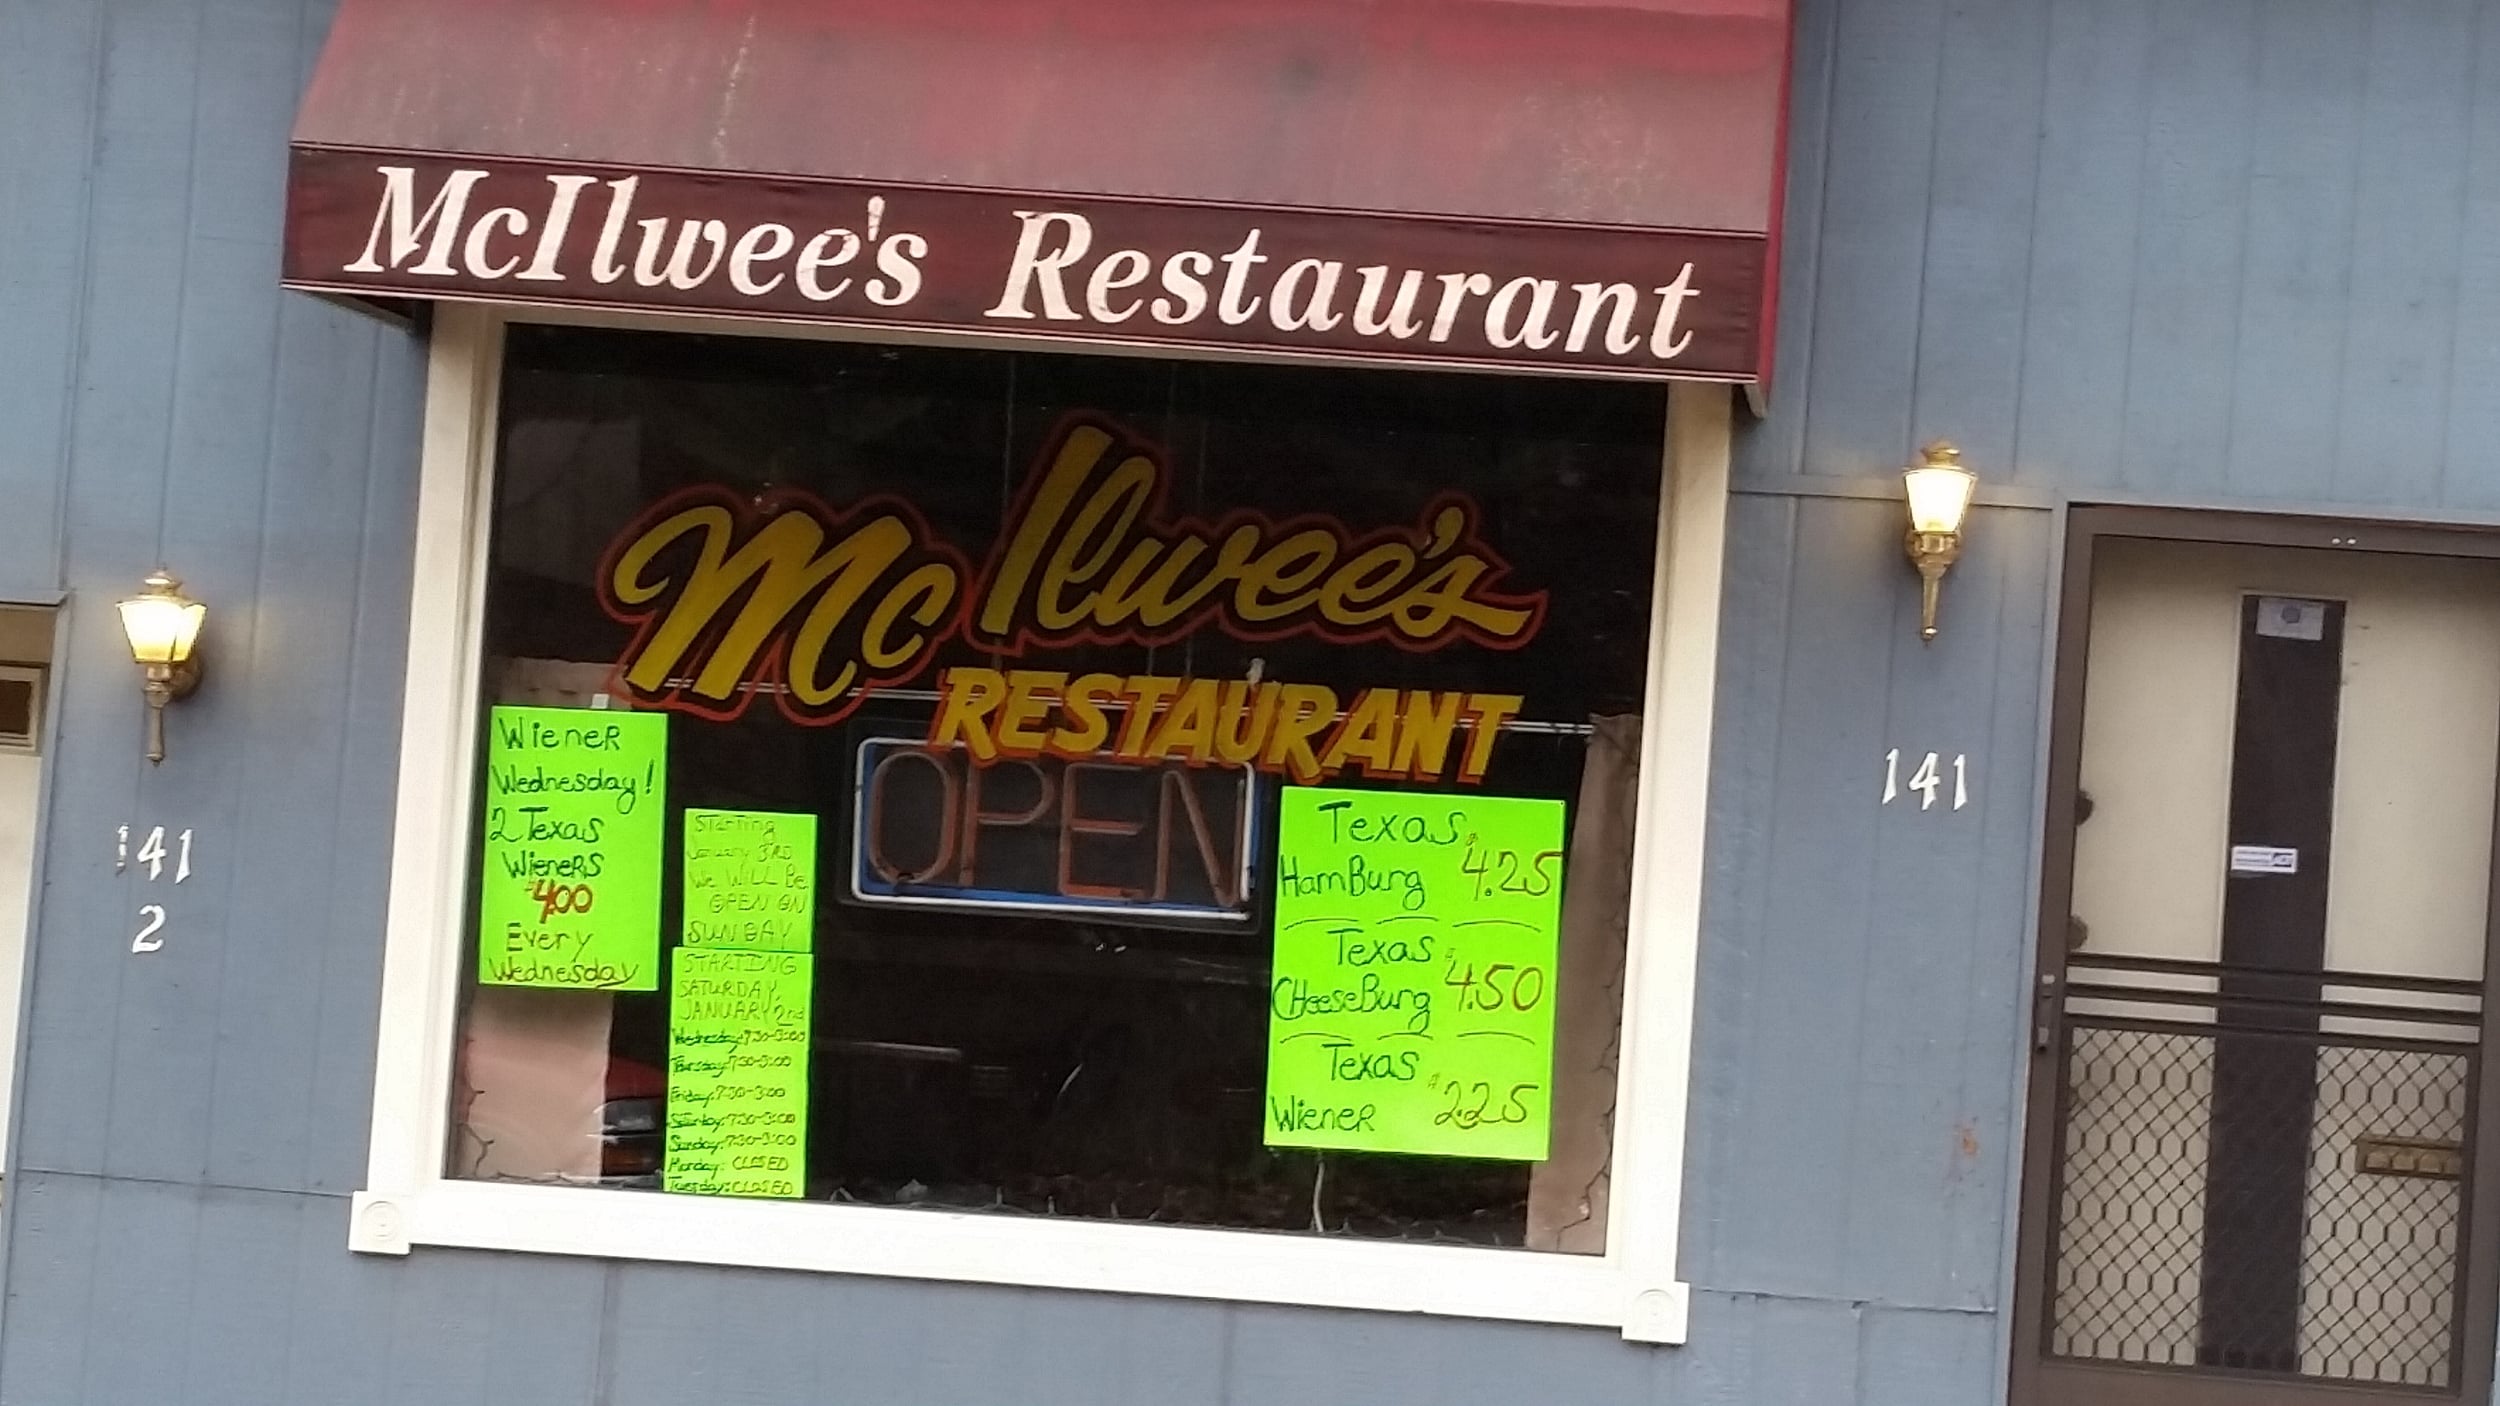 McIlwee's Restaurant
McIlwee's
RESTAURANT
OPEN
Wiener
Wednesday!
2 Texas
Wieners
$4.00
Every
Wednesday
Starting
January 3RD
We WILL Be
OPEN ON
SUNDAY
STARTING
SATURDAY,
JANUARY 2nd
Wednesday: 7:30-3:00
Thursday: 7:30-3:00
Friday: 7:30-3:00
Saturday: 7:30-3:00
Sunday: 7:30-3:00
Monday: CLOSED
Tuesday: CLOSED
Texas
HamBurg $4.25
Texas
CHeeseBurg $4.50
Texas
Wiener $2.25
141
2
141